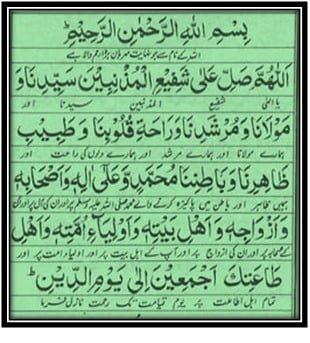 بِسْمِ اللهِ الرَّحْمٰنِ الرَّحِيْمِ ط
اللہ کے نام سے جو نہایت مہربان بڑا رحم والا ہے
اَللّٰهُمَّ صَلِّ عَلٰى شَفِيْعِ الْمُذْنِبِيْنَ سَيِّدِنَا وَ
یا الٰہی شفیع المذنبین سیدنا اور
مَوْلَانَا وَمُرْشِدِنَا وَرَاحَةِ قُلُوْبِنَا وَطَبِيْبِ
ہمارے مولانا اور ہمارے مرشد اور ہمارے دلوں کی راحت اور
ظَاهِرِنَا وَبَاطِنِنَا مُحَمَّدٍ وَّعَلٰى اٰلِهٖ وَاَصْحَابِهٖ
ظاہر اور باطن میں پاکیزہ کرنے والے محمد صلی اللہ علیہ وسلم پر اور ان کی آل پر اور ان
وَاَزْوَاجِهٖ وَاَهْلِ بَيْتِهٖ وَاَوْلِيَاءِ اُمَّتِهٖ وَاَهْلِ
کے صحابہ پر اور ان کی ازواج پر اور آپ کے اہل بیت پر اور اولیاء امت پر اور
طَاعَتِكَ اَجْمَعِيْنَ اِلٰى يَوْمِ الدِّيْنِ ط
تمام اہل اطاعت پر یوم قیامت تک رحمت نازل فرما